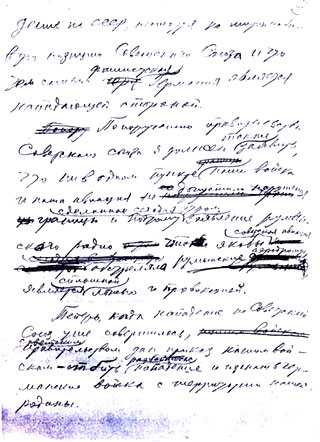 дение на СССР, несмотря на миролюби-
вую позицию Советского Союза и что
тем самым фашистская Германия является
нападающей стороной.
По поручению правительства
Советского Союза я должен также заявить,
что ни в одном пункте наши войска
и наша авиация не допустили нарушения
границы и потому сделанное сегодня утром заявление румын-
ского радио, что якобы советская авиация
обстреляла румынские аэродромы
является сплошной ложью и провокацией.
Теперь, когда нападение на Советский
Союз уже совершилось,
Советским правительством дан приказ нашим вой-
скам — отбить нападение и изгнать гер-
манские войска с территории нашей
родины.